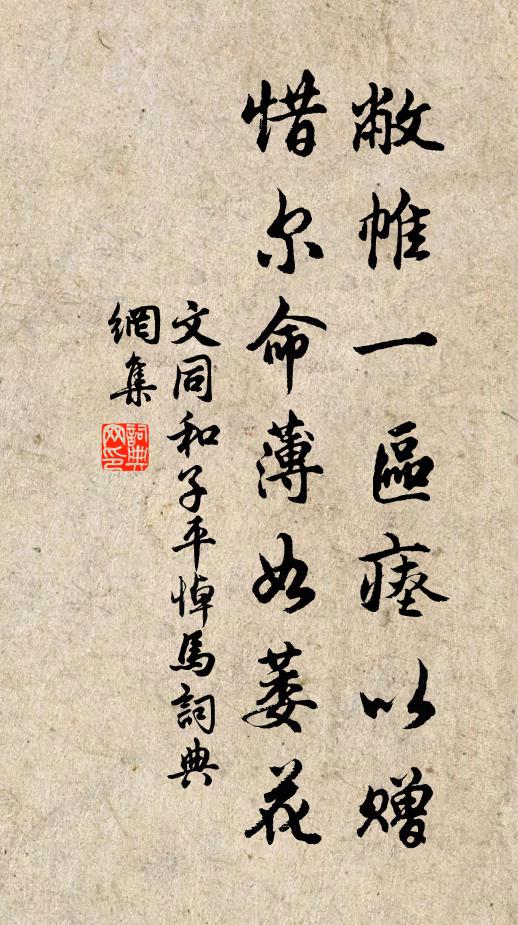 敝帷一區瘞以赠
惜尔命薄如萎花
文同和子平悼馬詞典
網集
詞典
网印